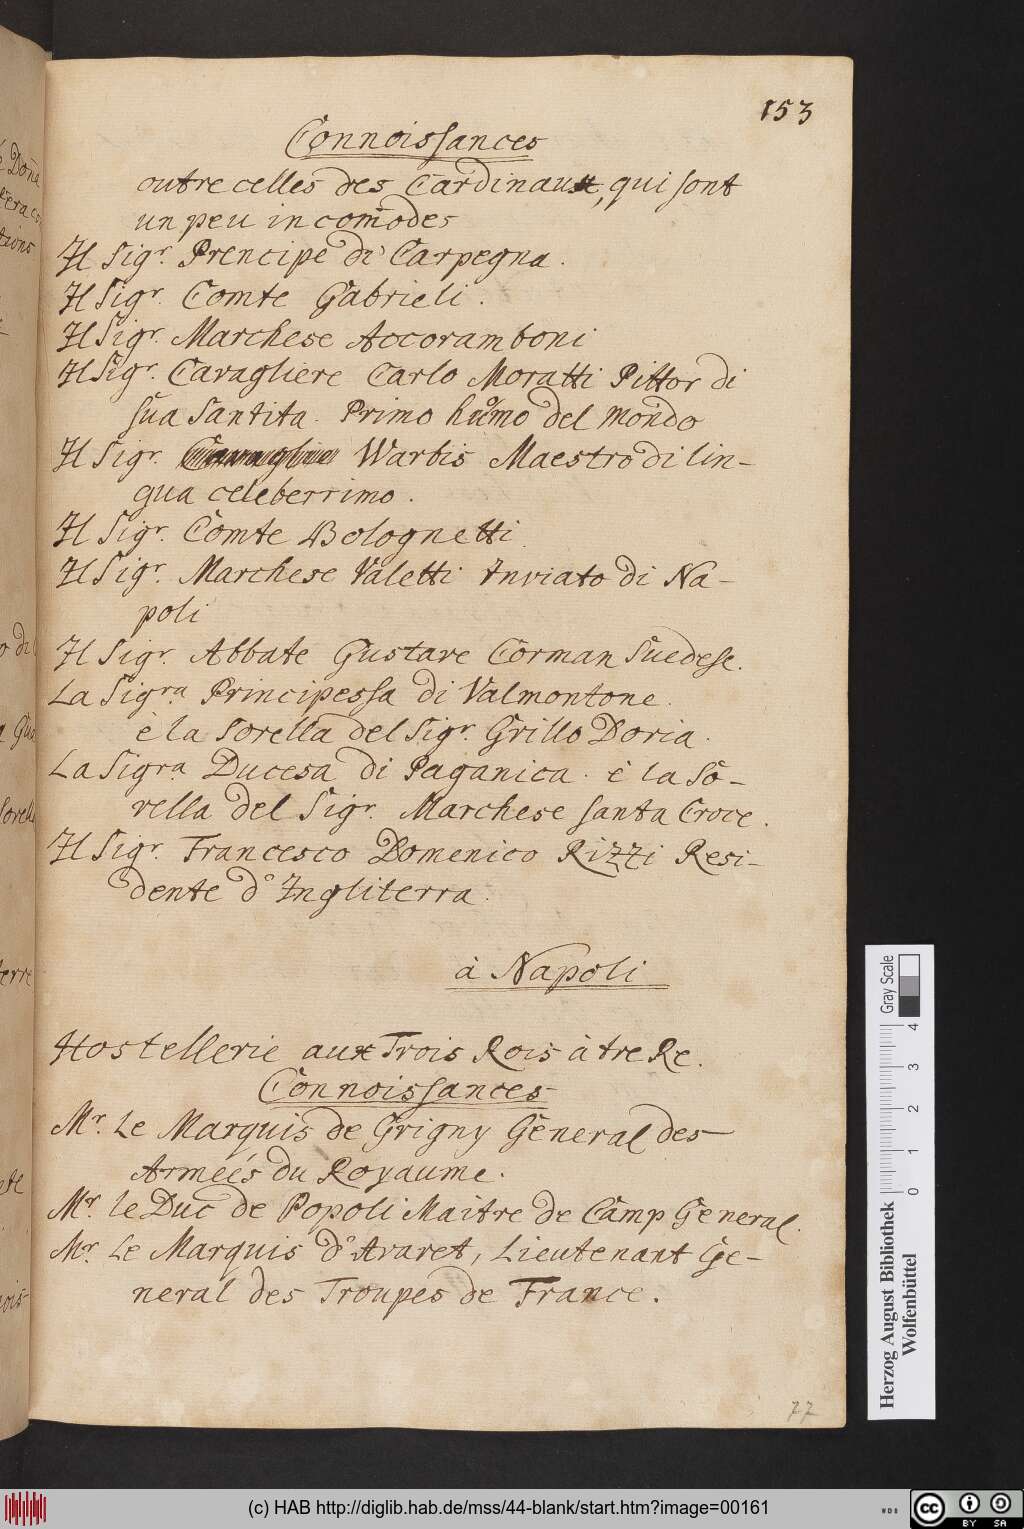 153
Connoissances
outre celles des Cardinaux, qui sont
un peu incom̄odes
Il Sigr. Prencipe di Carpegna.
Il Sigr. Comte Gabrieli.
Il Sigr. Marchese Accoramboni
Il Sigr. Cavagliere Carlo Moratti Pittor di
sua Santita. Primo huomo del mondo
Il Sigr. Warbis Maestro di lin-
gua celeberrimo.
Il Sigr. Comte Bolognetti
Il Sigr. Marchese Valetti Inviato di Na-
poli
Il Sigr. Abbate Gustave Corman Suedese.
La Sigra Principessa di Valmontone.
è la Sorella del Sigr. Grillo Doria.
La Sigra Ducesa di Paganica. è la So-
rella del Sigr. Marchese Santa Croce.
Il Sigr. Francesco Domenico Rizzi Resi-
dente d'Ingliterra.
à Napoli
Hostellerie aux Trois Rois à tre Re.
Connoissances
Mr. Le Marquis de Grigny General des
Armeés du Royaume.
Mr. le Duc de Popoli Maitre de Camp General.
Mr. Le Marquis d'Avaret, Lieutenant Ge-
neral des Troupes de France.
77
Herzog August Bibliothek
Wolfenbüttel
0 1 2 3 4
Gray Scale
(c) HAB http://diglib.hab.de/mss/44-blank/start.htm?image=00161
WDB
cc BY SA